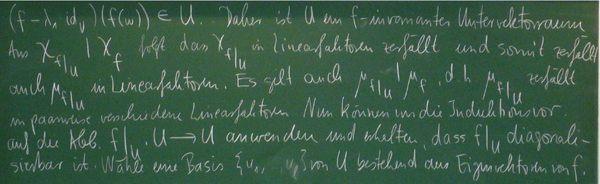 (f-λ₁ id_V)(f(u)) ∈ U. Daher ist U ein f-invarianter Untervektorraum
Aus χ_{f|_U} | χ_f folgt dass χ_{f|_U} in Linearfaktoren zerfällt und somit zerfällt
auch μ_{f|_U} in Linearfaktoren. Es gilt auch μ_{f|_U} | μ_f, d.h. μ_{f|_U} zerfällt
in paarweise verschiedene Linearfaktoren Nun können wir die Induktionsvor.
auf die Abb. f|_U: U → U anwenden und erhalten, dass f|_U diagonali-
sierbar ist. Wähle eine Basis {u₁, } von U bestehend aus Eigenvektoren von f.